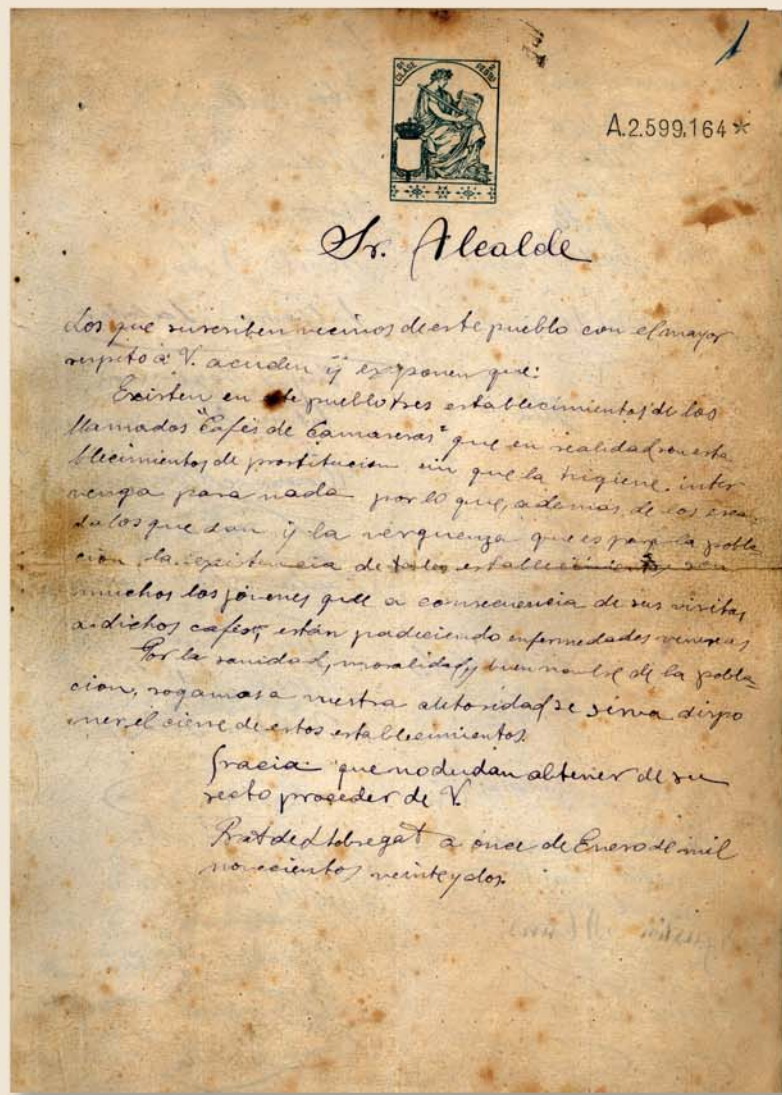 1
8ª CLASE
2 PESETAS
A.2.599.164*
Sr. Alcalde
Los que suscriben vecinos de este pueblo con el mayor
respeto á V. acuden y exponen que:
Existen en este pueblo tres establecimientos de los
llamados "Cafés de Camareras" que en realidad son esta
blecimientos de prostitucion sin que la higiene inter
venga para nada por lo que, además, de los escan
dalos que dan y la verguenza que es para la pobla-
cion la existencia de tales establecimientos son
muchos los jóvenes que a consecuencia de sus visitas
a dichos cafés, están padeciendo enfermedades venereas
Por la sanidad, moralidad y buen nombre de la pobla-
cion, rogamos a vuestra autoridad se sirva dispo
ner el cierre de estos establecimientos.
Gracia que no dudan obtener de su
recto proceder de V.
Prat de Llobregat a once de Enero de mil
novecientos veinte y dos.